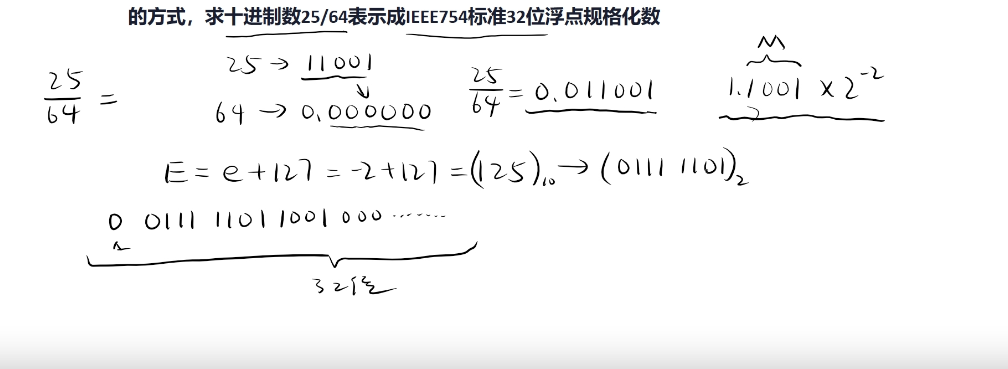 的方式，求十进制数25/64表示成IEEE754标准32位浮点规格化数
25/64 =
25 → 11001
64 → 0.000000
25/64 = 0.011001
M
1.1001 × 2^-2
E = e+127 = -2+127 = (125)₁₀ → (0111 1101)₂
0 0111 1101 1001 000·······
32位